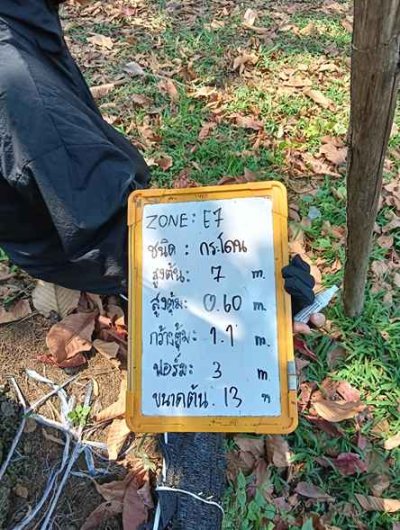 ZONE: E7
ชนิด: กระโดน
สูงต้น: 7 m.
สูงตุ้ม: 0.60 m.
กว้างตุ้ม: 1.1 m.
ฟอร์ม: 3 m
ขนาดต้น. 13 "